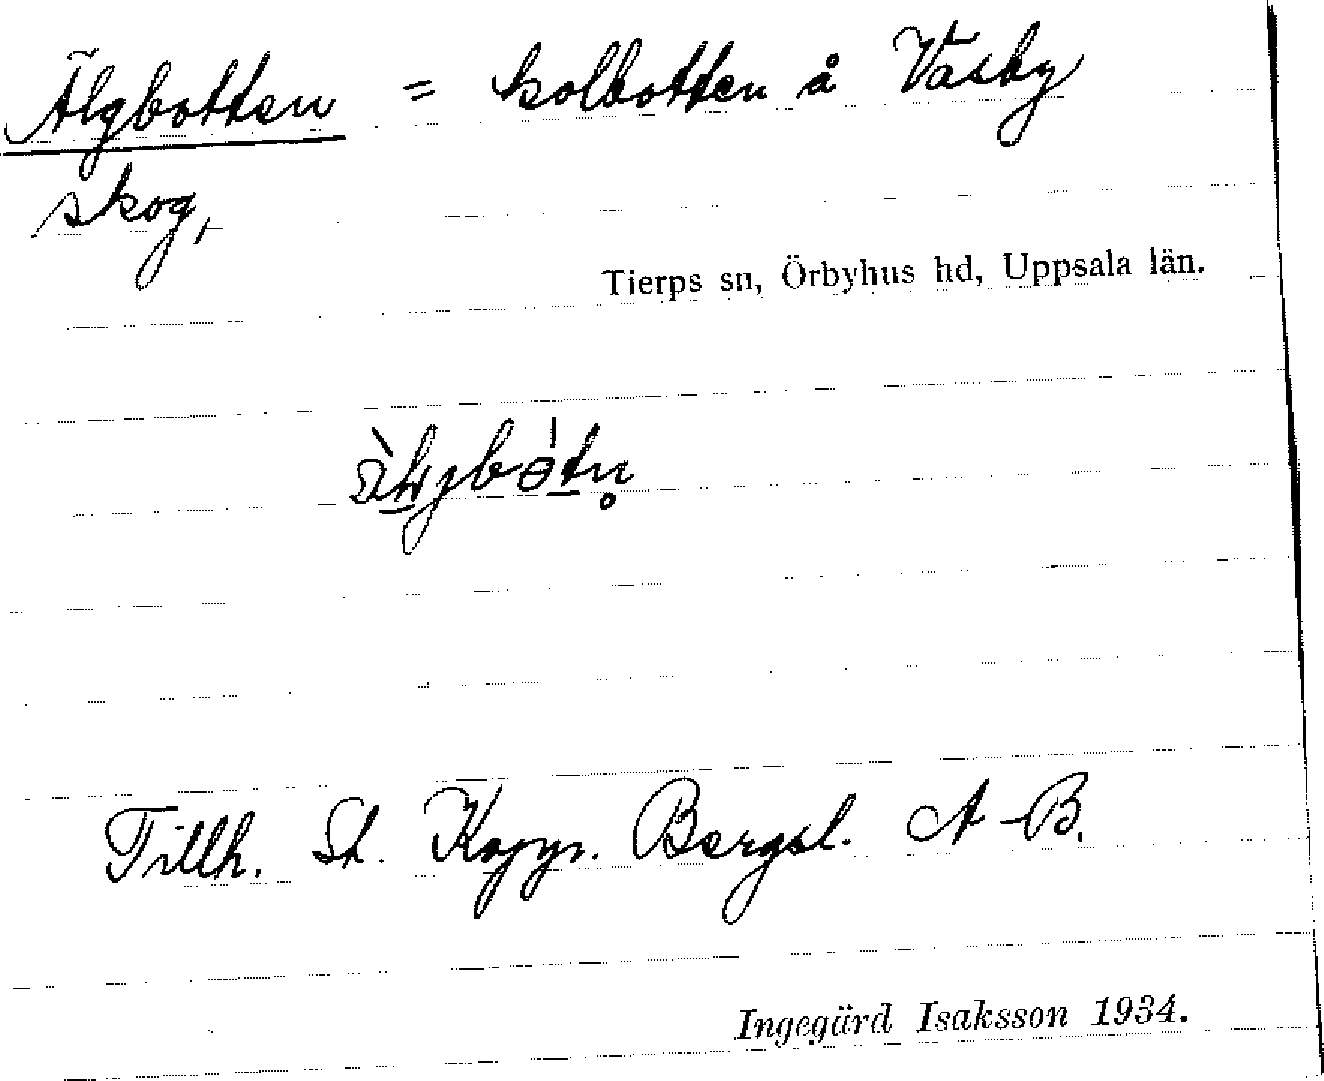 Älgbotten = kolbotten å Vasby
skog,
Tierps sn, Örbyhus hd, Uppsala län.
Tillh. St. Kopp. Bergsl. A-B.
Ingegärd Isaksson 1934.